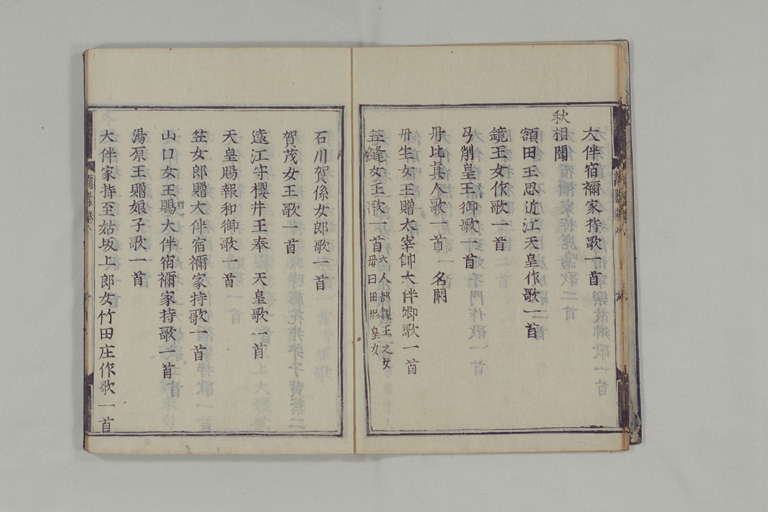 大伴宿禰家持歌一首
秋相聞
額田王思近江天皇作歌一首
鏡王女作歌一首
弓削皇王御歌一首
丹比真人歌一首 名闕
丹生女王贈太宰帥大伴卿歌一首
笠縫女王歌一首 六人部親王之女
母曰田形皇女
石川賀係女郎歌一首
賀茂女王歌一首
遠江守櫻井王奉 天皇歌一首
天皇賜報和御歌一首
笠女郎贈大伴宿禰家持歌一首
山口女王賜大伴宿禰家持歌一首
湯原王贈娘子歌一首
大伴家持至姑坂上郎女竹田庄作歌一首